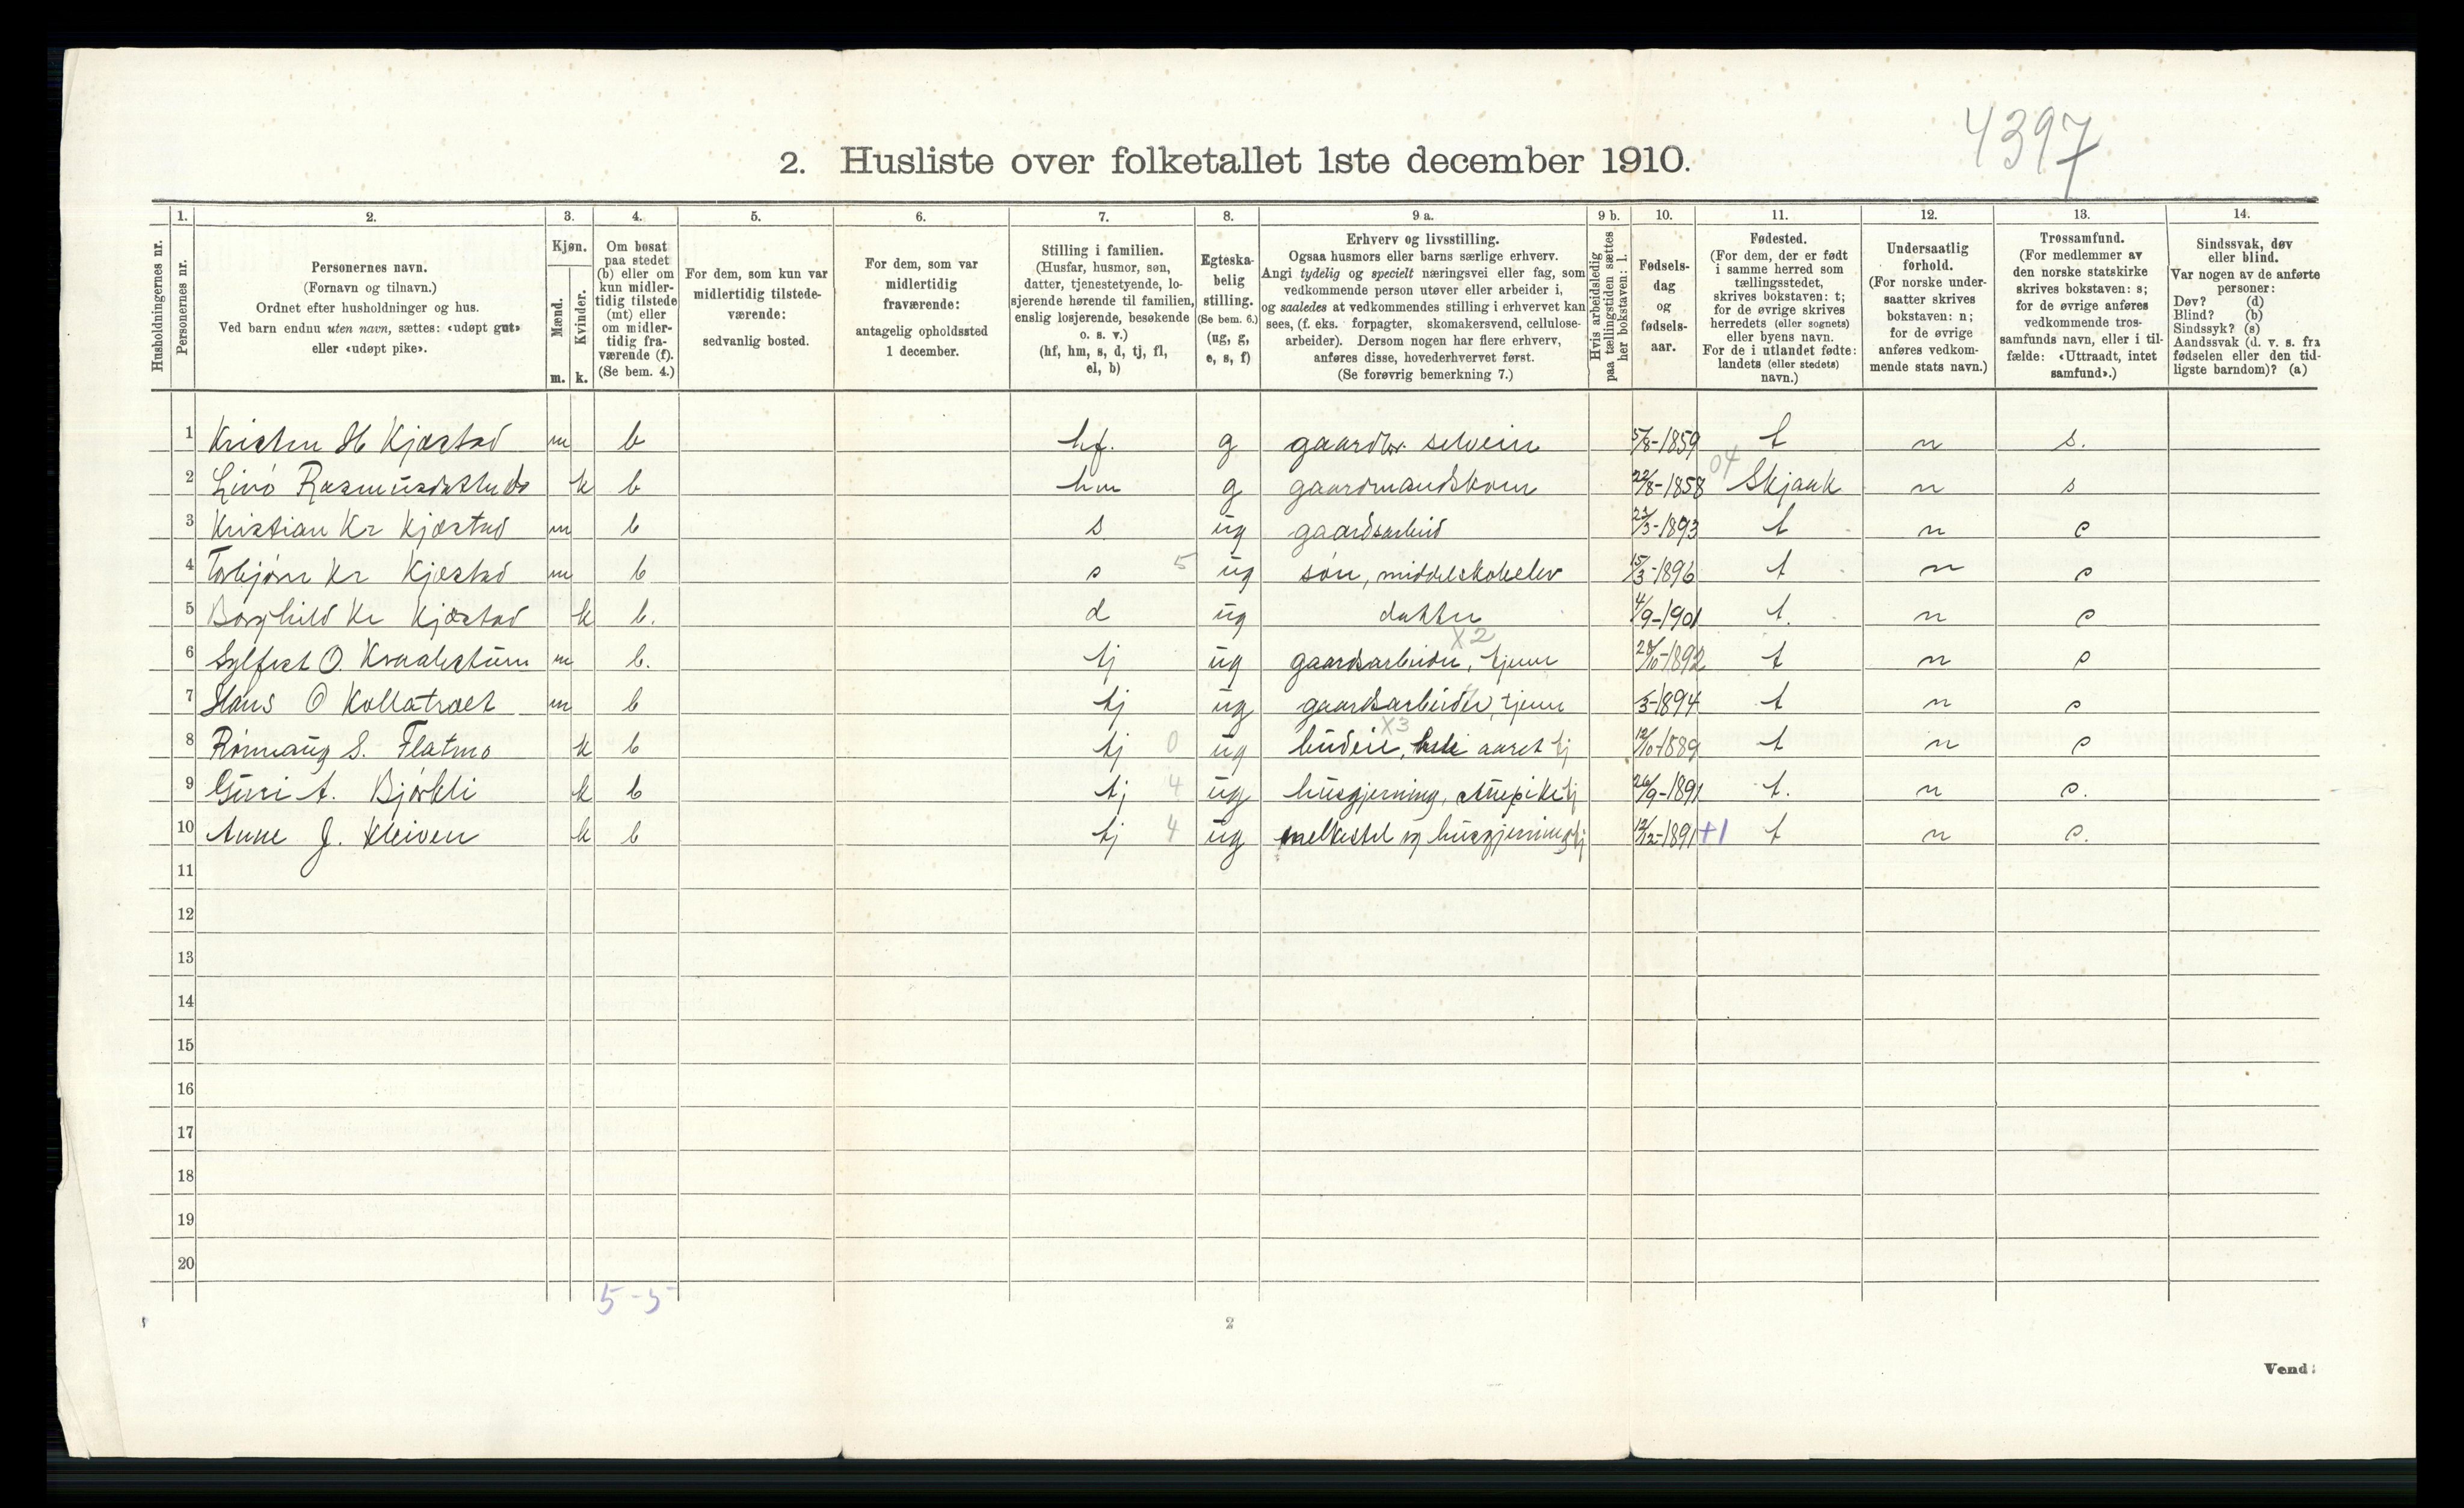 4397
2. Husliste over folketallet 1ste december 1910.
Husholdningernes nr.
1. Personernes nr.
2. Personernes navn.
(Fornavn og tilnavn.)
Ordnet efter husholdninger og hus.
Ved barn endnu uten navn, sættes: «udøpt gut»
eller «udøpt pike».
3. Kjøn.
Mænd. m.
Kvinder. k.
4. Om bosat
paa stedet
(b) eller om
kun midler-
tidig tilstede
(mt) eller
om midler-
tidig fra-
værende (f).
(Se bem. 4.)
5. For dem, som kun var
midlertidig tilstede-
værende:
sedvanlig bosted.
6. For dem, som var
midlertidig
fraværende:
antagelig opholdssted
1 december.
7. Stilling i familien.
(Husfar, husmor, søn,
datter, tjenestetyende, lo-
sjerende hørende til familien,
enslig losjerende, besøkende
o. s. v.)
(hf, hm, s, d, tj, fl,
el, b)
8. Egteska-
belig
stilling.
(Se bem. 6.)
(ug, g,
e, s, f)
9 a. Erhverv og livsstilling.
Ogsaa husmors eller barns særlige erhverv.
Angi tydelig og specielt næringsvei eller fag, som
vedkommende person utøver eller arbeider i,
og saaledes at vedkommendes stilling i erhvervet kan
sees, (f. eks. forpagter, skomakersvend, cellulose-
arbeider). Dersom nogen har flere erhverv,
anføres disse, hovederhvervet først.
(Se forøvrig bemerkning 7.)
9 b. Hvis arbeidsledig
paa tællingstiden sættes
her bokstaven: l.
10. Fødsels-
dag
og
fødsels-
aar.
11. Fødested.
(For dem, der er født
i samme herred som
tællingsstedet,
skrives bokstaven: t;
for de øvrige skrives
herredets (eller sognets)
eller byens navn.
For de i utlandet fødte:
landets (eller stedets)
navn.)
12. Undersaatlig
forhold.
(For norske under-
saatter skrives
bokstaven: n;
for de øvrige
anføres vedkom-
mende stats navn.)
13. Trossamfund.
(For medlemmer av
den norske statskirke
skrives bokstaven: s;
for de øvrige anføres
vedkommende tros-
samfunds navn, eller i til-
fælde: «Uttraadt, intet
samfund».)
14. Sindssvak, døv
eller blind.
Var nogen av de anførte
personer:
Døv? (d)
Blind? (b)
Sindssyk? (s)
Aandssvak (d. v. s. fra
fødselen eller den tid-
ligste barndom)? (a)
1 Kristen H Kjæstad m b hf. g gaardbr. selveier 5/8-1859 t n s.
04
2 Livó Rasmusdatter k b hm g gaardmandskone 22/8-1858 Skjaak n s
3 Kristian Kr Kjæstad m b s ug gaardsarbeid 22/3-1893 t n s
4 Torbjørn Kr Kjæstad m b s 5 ug søn, middelskoleelev 15/3-1896 t n s
5 Borghild Kr Kjæstad k b. d ug datter 4/9-1901 t. n s
X2
6 Sylfest O. m b. tj ug gaardsarbeider, tjener 28/10-1892 t n s
7 Hans O m b tj ug gaardsarbeider, tjener 3-1894 t n s
X3
8 Rønnaug S. Flatmo k b tj 0 ug budeie, hele aaret tj 12/10-1889 t n s
9 Guri A. Bjørkli k b tj 4 ug husgjerning, stuepike tj 26/9-1891 t. n s.
10 Anne J. Kleiven k b tj 4 ug melkestel og husgjerning tj 12/12-1891 +1 t n s.
11
12
13
14
15
16
17
18
19
20
5 - 5
2
Vend!